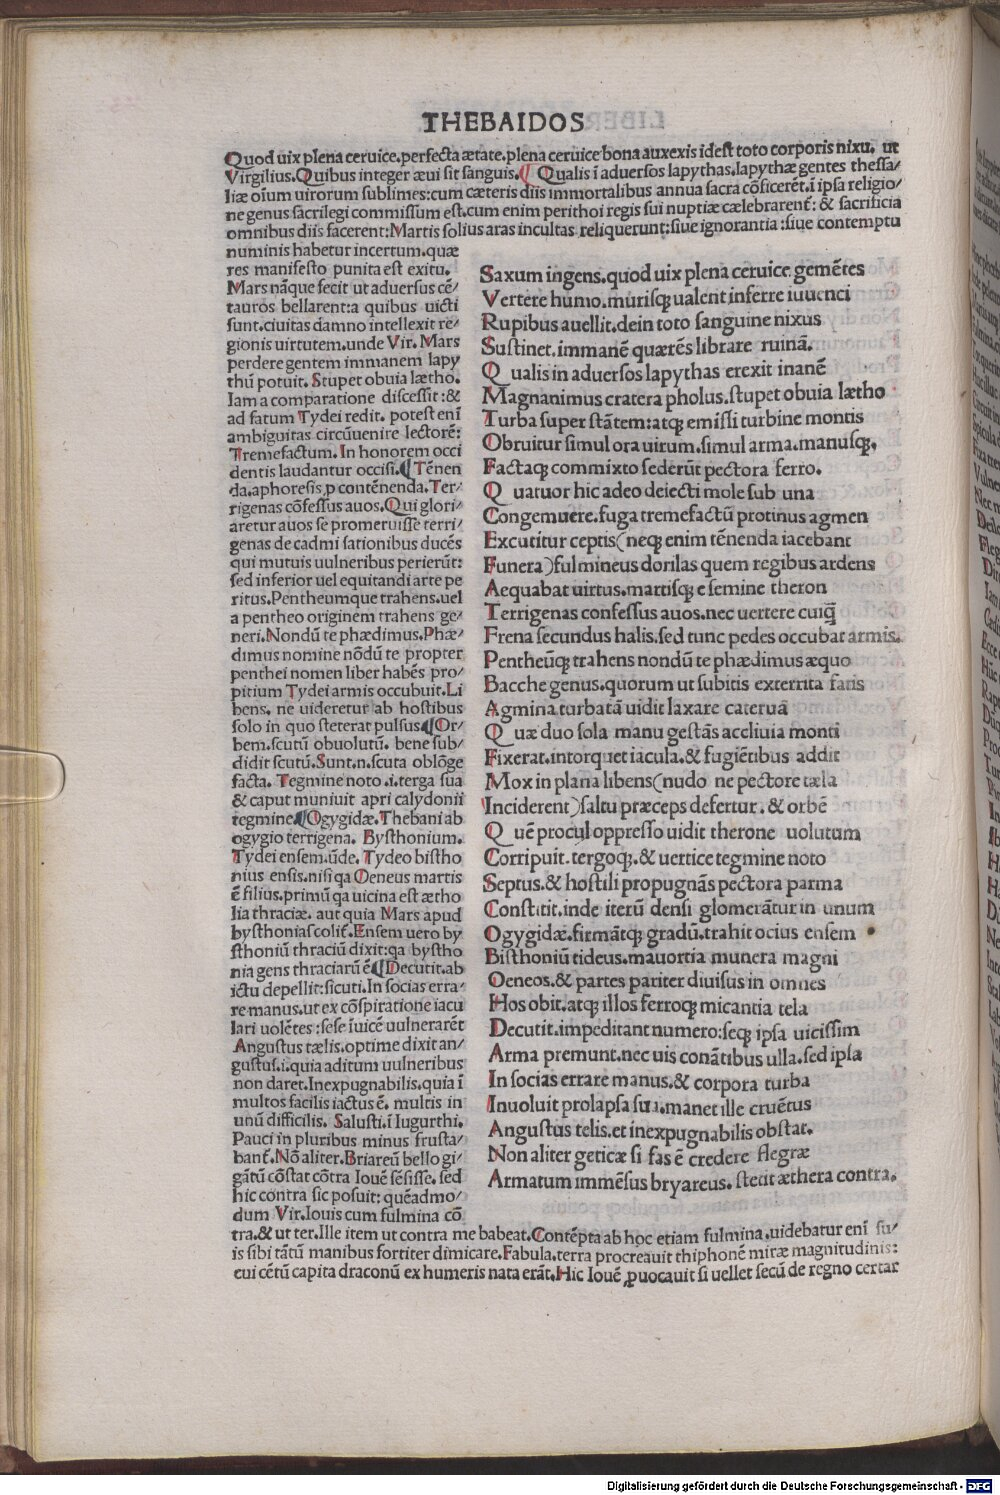 THEBAIDOS
Quod uix plena ceruice.perfecta ætate.plena ceruice bona auxexis idest toto corporis nixu. ut
Virgilius.Quibus integer æui sit sanguis.¶ Qualis ī aduersos lapythas.lapythæ gentes thessa/
liæ oīum uirorum sublimes:cum cæteris diis immortalibus annua sacra cōficerēt.ī ipsa religio/
ne genus sacrilegi commissum est.cum enim perithoi regis sui nuptiæ cælebrarent̄: & sacrificia
omnibus diis facerent:Martis solius aras incultas reliquerunt:siue ignorantia :siue contemptu
numinis habetur incertum.quæ
res manifesto punita est exitu.
Mars nāque fecit ut aduersus cē/
tauros bellarent:a quibus uicti
sunt.ciuitas damno intellexit re/
gionis uirtutem.unde Vir. Mars
perdere gentem immanem lapy
thū potuit. Stupet obuia lætho.
Iam a comparatione discessit :&
ad fatum Tydei redit. potest enī
ambiguitas circūuenire lectorē:
Tremefactum. In honorem occi
dentis laudantur occisi.¶ Tēnen
da.aphoresis ꝓ contēnenda. Ter/
rigenas cōfessus auos.Qui glori/
aretur auos se promeruisse terri/
genas de cadmi sationibus ducēs
qui mutuis uulneribus perierūt:
sed inferior uel equitandi arte pe
ritus.Pentheumque trahens.uel
a pentheo originem trahens ge/
neri.Nondū te phædimus.Phæ/
dimus nomine nōdū te propter
penthei nomen liber habēs pro/
pitium Tydei armis occubuit.Li
bens. ne uideretur ab hostibus
solo in quo steterat pulsus.¶Or/
bem.scutū obuolutū. bene sub/
didit scutū.Sunt.n.scuta oblōge
facta. Tegmine noto .i.terga sua
& caput muniuit apri calydonii
tegmine.¶Ogygidæ.Thebani ab
ogygio terrigena. Bysthonium.
Tydei ensem.ūde. Tydeo bistho
nius ensis.nisi qa Oeneus martis
ē filius.primū qa uicina est ætho
lia thraciæ. aut quia Mars apud
bysthonias colit̄.Ensem uero by
sthoniū thraciū dixit:qa bystho
nia gens thraciarū ē¶Decutit.ab
ictu depellit:sicuti.In socias erra/
re manus.ut ex cōspiratione iacu
lari uolētes :sese īuicē uulnerarēt
Angustus tælis.optime dixit an/
gustus.i.quia aditum uulneribus
non daret.Inexpugnabilis.quia ī
multos facilis iactus ē. multis in
unū difficilis. Salusti.ī Iugurthi.
Pauci in pluribus minus frusta/
bant̄.Nō aliter.Briareū bello gi/
gātū cōstat cōtra Iouē sēsisse. sed
hic contra sic posuit: quēadmo/
dum Vir.Iouis cum fulmina cō
tra.& ut ter.Ille item ut contra me babeat.Contēpta ab hoc etiam fulmina.uidebatur enī su/
is sibi tātū manibus fortiter dimicare.Fabula.terra procreauit thiphonē miræ magnitudinis:
cui cētū capita draconū ex humeris nata erāt.Hic Iouē ꝓuocauit si uellet secū de regno certar
Saxum ingens.quod uix plena ceruice gemētes
Vertere humo.murisq; ualent inferre iuuenci
Rupibus auellit.dein toto sanguine nixus
Sustinet.immanē quærēs librare ruinā.
Qualis in aduersos lapythas erexit inanē
Magnanimus cratera pholus.stupet obuia lætho
Turba super stātem:atq; emissi turbine montis
Obruitur simul ora uirum.simul arma.manusq;.
Factaq; commixto sederūt pectora ferro.
Quatuor hic adeo deiecti mole sub una
Congemuere.fuga tremefactū protinus agmen
Excutitur ceptis(neq; enim tēnenda iacebant
Funera)fulmineus dorilas quem regibus ardens
Aequabat uirtus.martisq; e semine theron
Terrigenas confessus auos.nec uertere cuiq̄
Frena secundus halis.sed tunc pedes occubat armis.
Pentheūq; trahens nondū te phædimus æquo
Bacche genus.quorum ut subitis exterrita fatis
Agmina turbatā uidit laxare cateruā
Quæ duo sola manu gestās accliuia monti
Fixerat.intorquet iacula.& fugiētibus addit
Mox in plana libens(nudo ne pectore tæla
Inciderent)saltu præceps defertur. & orbē
Quē procul oppresso uidit therone uolutum
Corripuit.tergoq;.& uertice tegmine noto
Septus.& hostili propugnās pectora parma
Constitit.inde iterū densi glomerātur in unum
Ogygidæ.firmātq; gradū.trahit ocius ensem
Bisthoniū tideus.mauortia munera magni
Oeneos.& partes pariter diuisus in omnes
Hos obit.atq; illos ferroq; micantia tela
Decutit.impeditant numero:seq; ipsa uicissim
Arma premunt.nec uis conātibus ulla.sed ipsa
In socias errare manus.& corpora turba
Inuoluit prolapsa sua.manet ille cruētus
Angustus telis.et inexpugnabilis obstat.
Non aliter geticæ si fas ē credere flegræ
Armatum immēsus bryareus.stetit æthera contra.
Digitalisierung gefördert durch die Deutsche Forschungsgemeinschaft - DFG